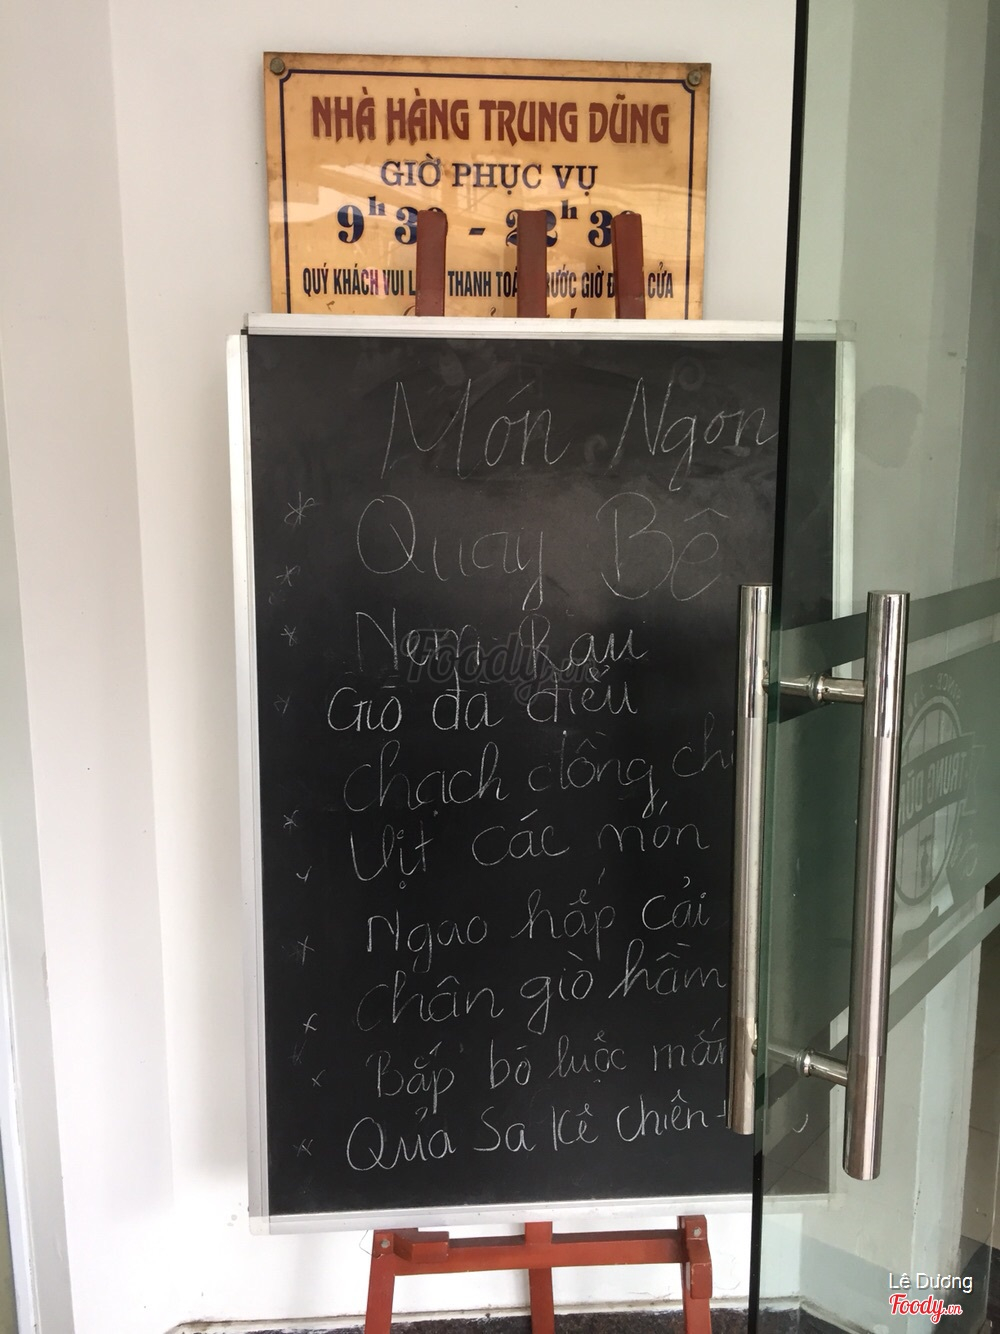 NHÀ HÀNG TRUNG DŨNG
GIỜ PHỤC VỤ
9h 30 - 22h 3
QUÝ KHÁCH VUI THANH TOÁ GIỜ CỬA
Món Ngon
Quay Bê
Nem Rau
Giò đà điểu
chạch đồng chi
Vịt các món
Ngao hấp cải
chân giò hầm
Bắp bò luộc mắ
Quả Sa kê chiên
TRUNG DŨ
Foody.vn
Lê Dương
Foody.vn